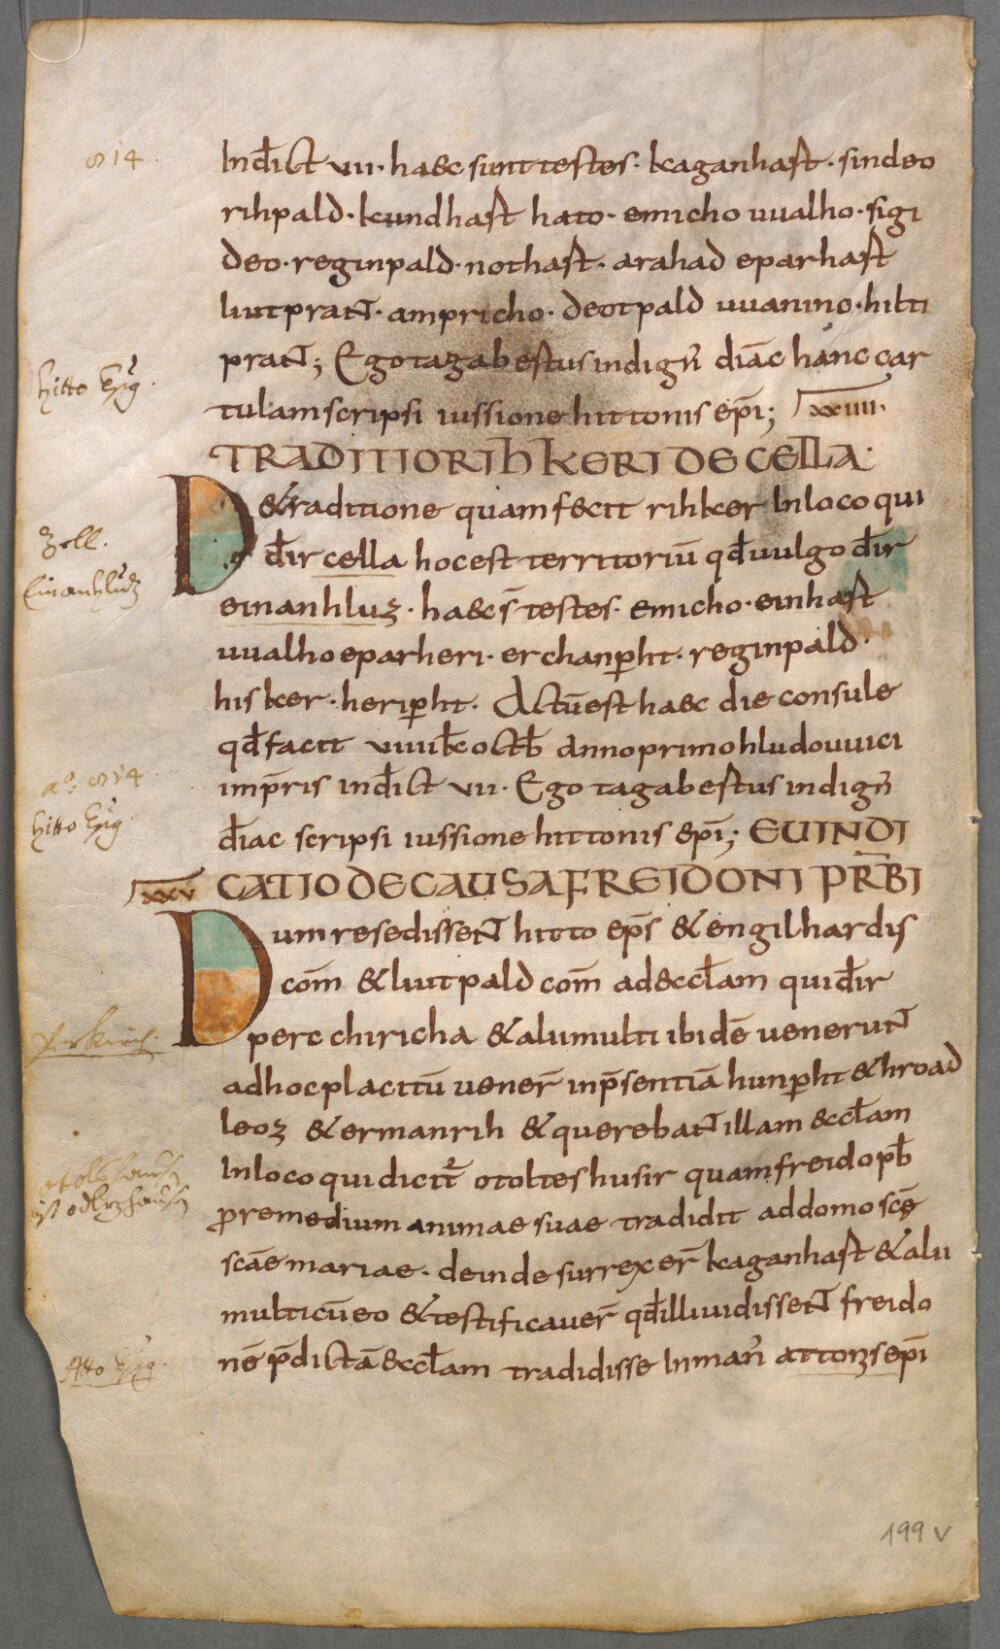 814.
Ind̄ict vii· haec sunt testes· kaganhast· sindeo
rihpald· kundhast hato· emicho uualho· sigi
deo· reginpald· nothast· arahad eparhast
liutprant̄· ampricho· deotpald uuanino· hilti
prant̄; Ego tagabestus indign̄ diāc hanc car
hitto Ep̄g.
tulam scripsi iussione hittonis ep̄i; xxiiii·
TRADITIO RIHKERI DE CELLA·
De traditione quam fecit rihker In loco qui
Zell.
d̄ir cella hoc est territoriū qd̄ uulgo d̄ir
Einanhlutz
einanhluz· haec s̄ testes· emicho· einhast
uualho eparheri· erchanp̄ht· reginpald·
hisker· herip̄ht· Actū est haec die consule
qd̄ facit viiii kl̄ octb̄ anno primo hludouuici
aº: 814
imp̄ris ind̄ict vii· Ego tagabestus indign̄
hitto Epg.
d̄iac scripsi iussione hittonis ep̄i; EUINDI
xxv CATIO DE CAUSA FREIDONI PR̄BI
Dum resedissent̄ hitto ep̄s & engilhardis
com̄ & liutpald com̄ ad eccl̄am qui d̄ir
perc chiricha & alii multi ibidē uenerunt̄
ad hoc placitū uener̄ in p̄sentiā hunp̄ht & hroad
leoz & ermanrih & querebant̄ illam eccl̄am
In loco qui dicit̄ otolteshusir quam freido pb̄
pro remedium animae suae tradidit ad domo scē
scāe mariae· deinde surrexer̄ kaganhast & alii
multi cū eo & testificauer̄ qd̄ illi uidissent̄ freido
Atto Epg.
nē p̄dictā eccl̄am tradidisse In man̄ attonis ep̄i
199 v